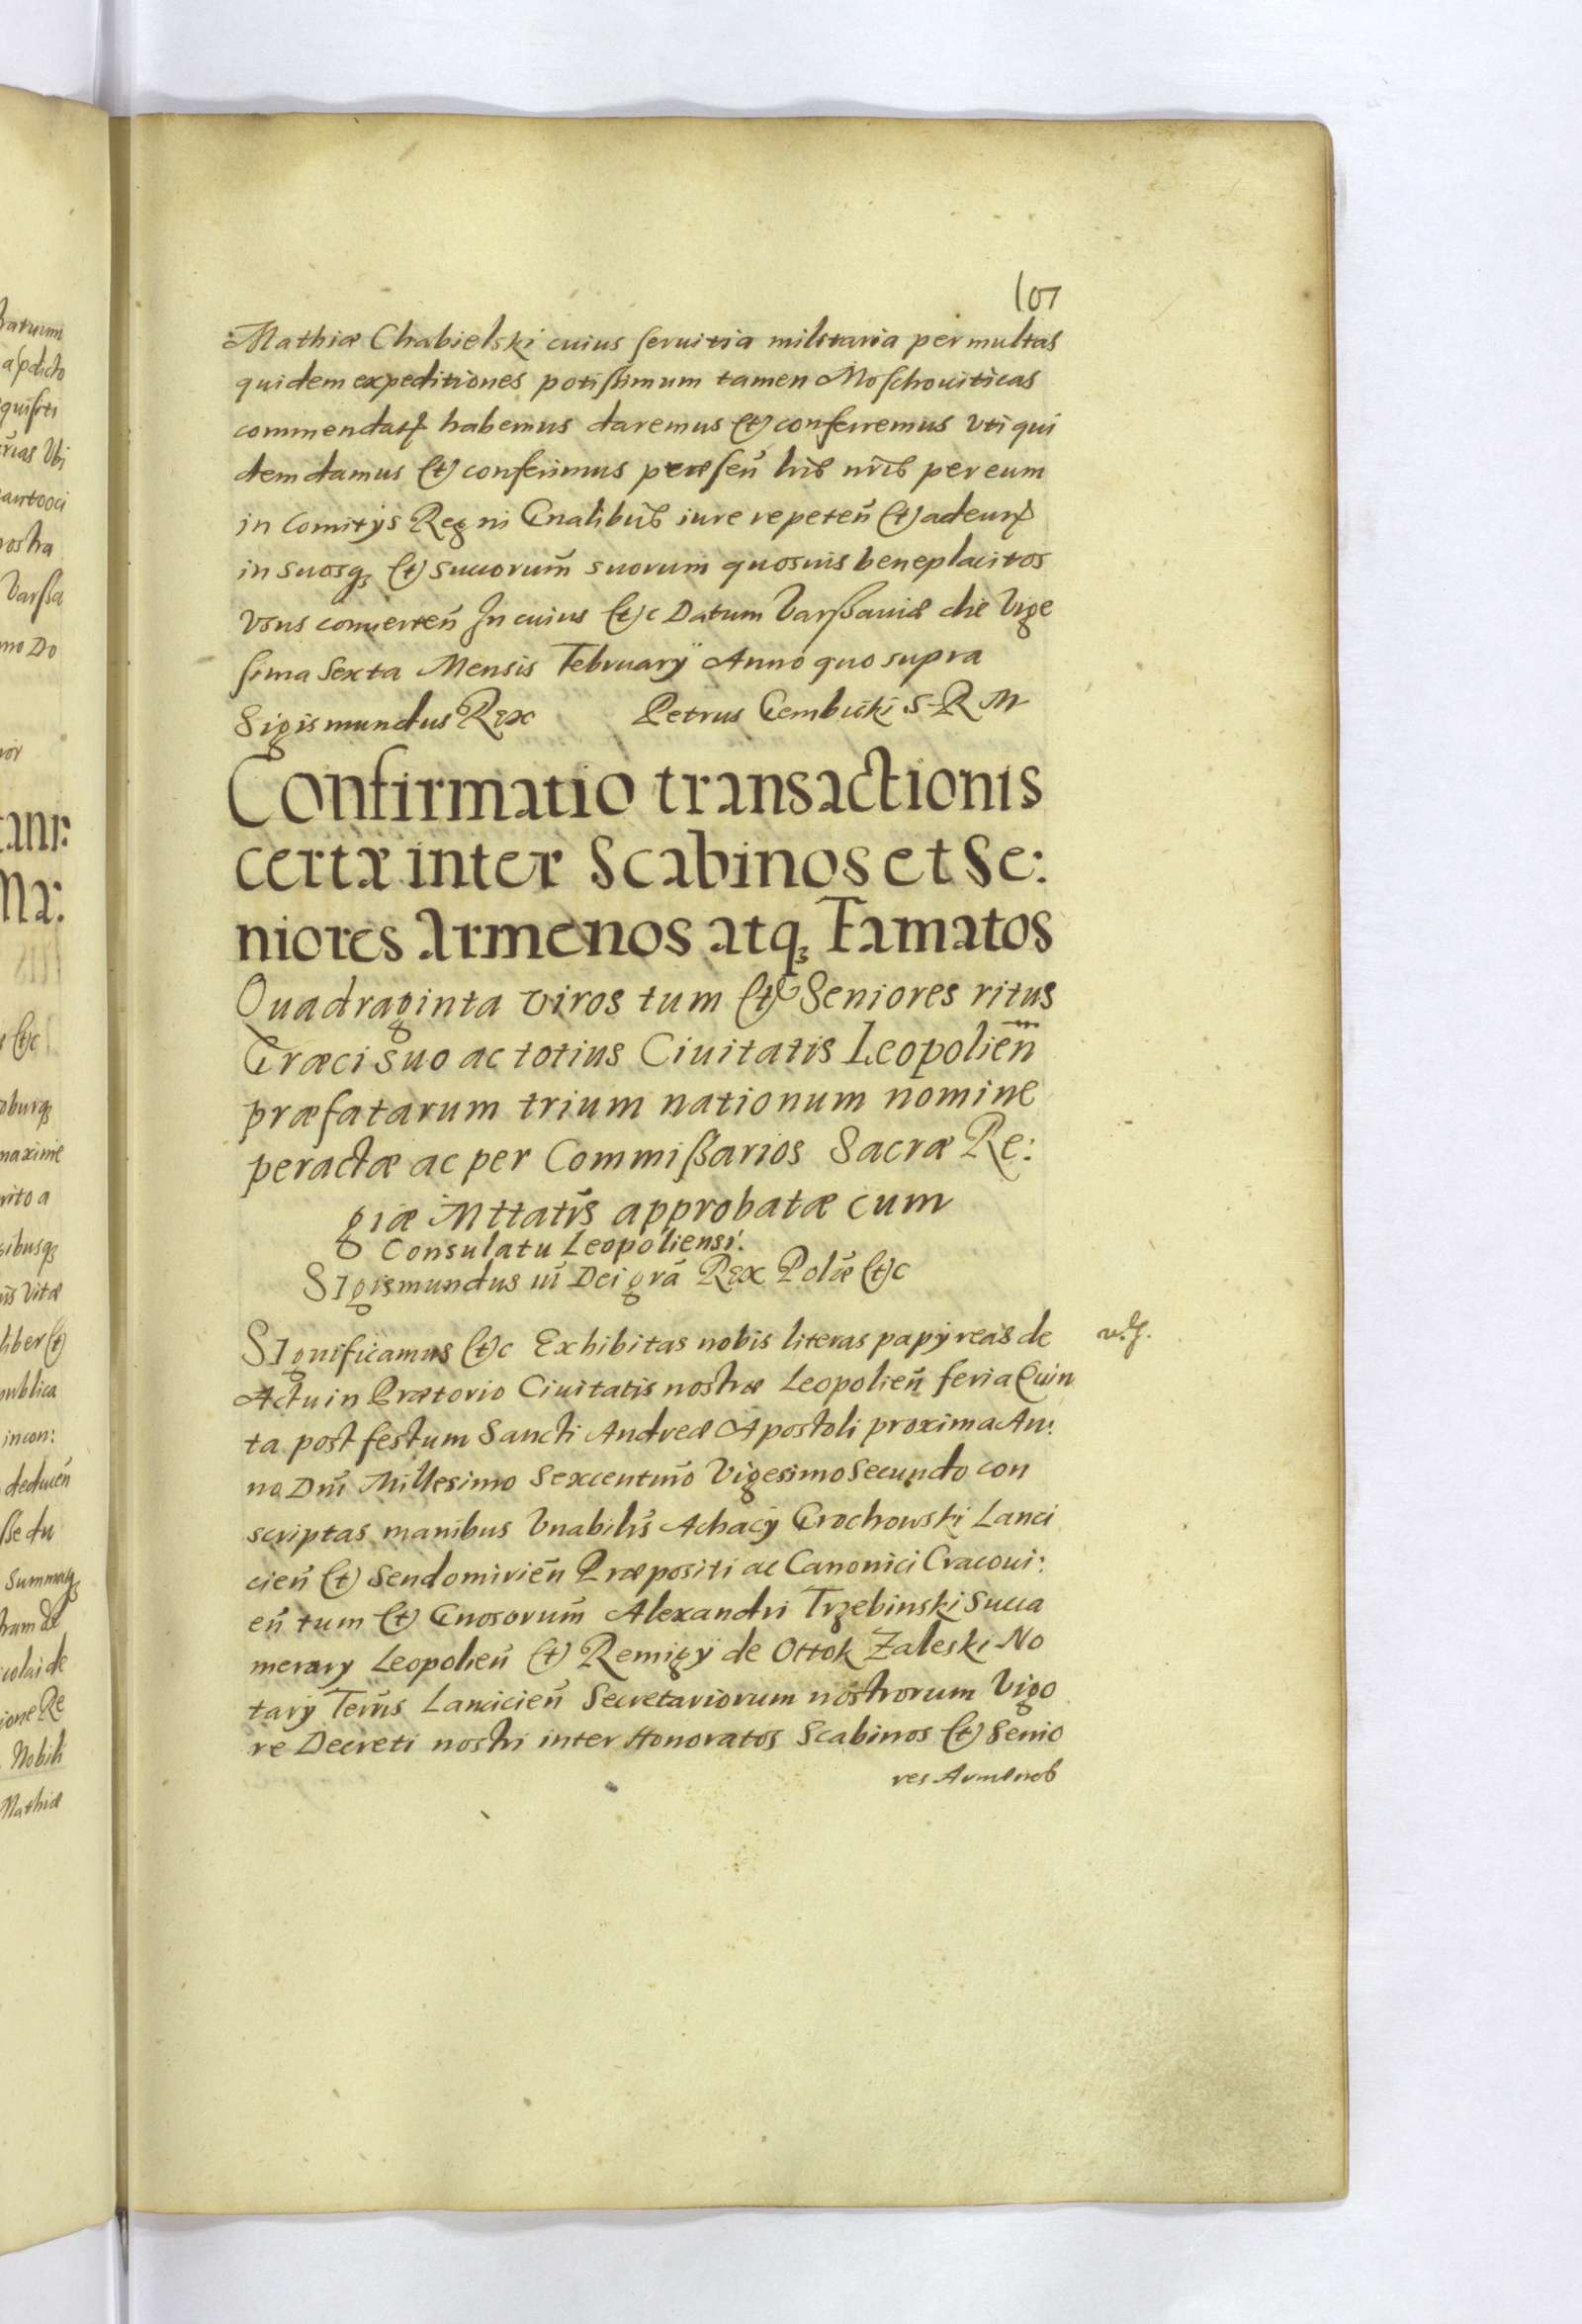 107
Mathiæ Chabielski cuius seruitia militaria per multas
quidem expeditiones potissimum tamen Moschouiticas
commendata habemus daremus et conferremus Uti qui
dem damus et conferimus præsen̄ lris nr̄is per eum
in Comitys Regni Gnalibus iure repeten̄ et adeun
in suosq et succorum̄ suorum quosuis beneplacitos
Usus conuerten̄ In cuius etc Datum Varssauiæ die Vige
sima Sexta Mensis February Anno quo supra
Sigismundus Rex Petrus Gembicki S R M
Confirmatio transactionis
certæ inter Scabinos et Se:
niores Armenos atq Famatos
Quadraginta viros tum et Seniores ritus
Græci suo ac totius Ciuitatis Leopolien̄
præfatarum trium nationum nomine
peractæ ac per Commissarios Sacræ Re:
giæ Mttatis approbatæ cum
Consulatu Leopoliensi.
Sigismundus iii Dei grā Rex Polōæ etc
Significamus etc Exhibitas nobis literas papyreas de
Actu in Prætorio Ciuitatis nostræ Leopolien̄ feria Quin
ta post festum Sancti Andreæ Apostoli proxima An:
no Dni Millesimo Sexcentmo Vigesimo Secundo con
scriptas manibus Vnabilis Achacy Grochowski Lanci
cien̄ et Sendomirien̄ Præpositi ac Canonici Cracoui:
en̄ tum et Gnosorum̄ Alexandri Trzebinski Succa
merary Leopolien̄ et Remigy de Ottok Zaleski No
tary Terris Lancicien̄ Secretariorum nostrorum Vigo
re Decreti nostri inter Honoratos Scabinos et Senio
res Armenos